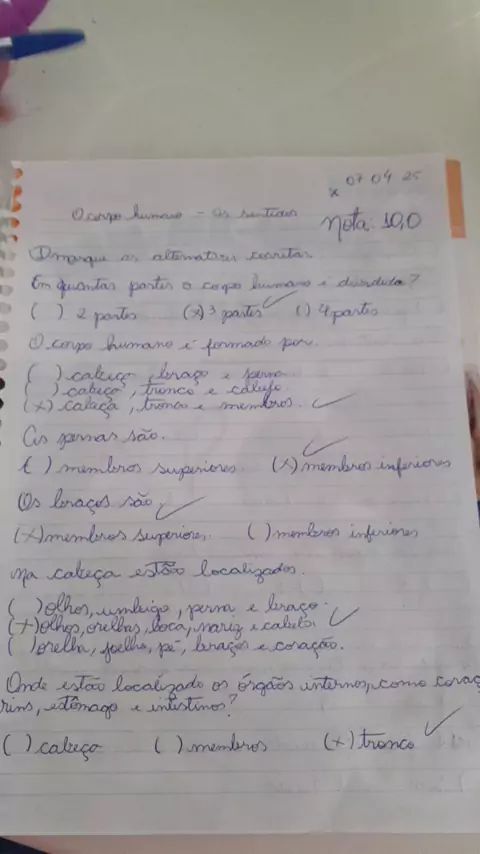 x 07 04 25
O corpo humano – os sentidos
Nota: 10,0
1) marque as alternativas corretas.
Em quantas partes o corpo humano é dividida?
( ) 2 partes (x) 3 partes ( ) 4 partes
O corpo humano é formado por.
( ) cabeça, braço e perna.
( ) cabeça, tronco e cabelo.
(x) cabeça, tronco e membros.
As pernas são.
( ) membros superiores. (x) membros inferiores
Os braços são
(x) membros superiores. ( ) membros inferiores
Na cabeça estão localizados.
( ) olhos, umbigo, perna e braço.
(x) olhos, orelhas, boca, nariz e cabelo.
( ) orelha, joelho, pé, braços e coração.
Onde estão localizado os órgãos internos, como coraç
rins, estômago e intestinos?
( ) cabeça ( ) membros (x) tronco